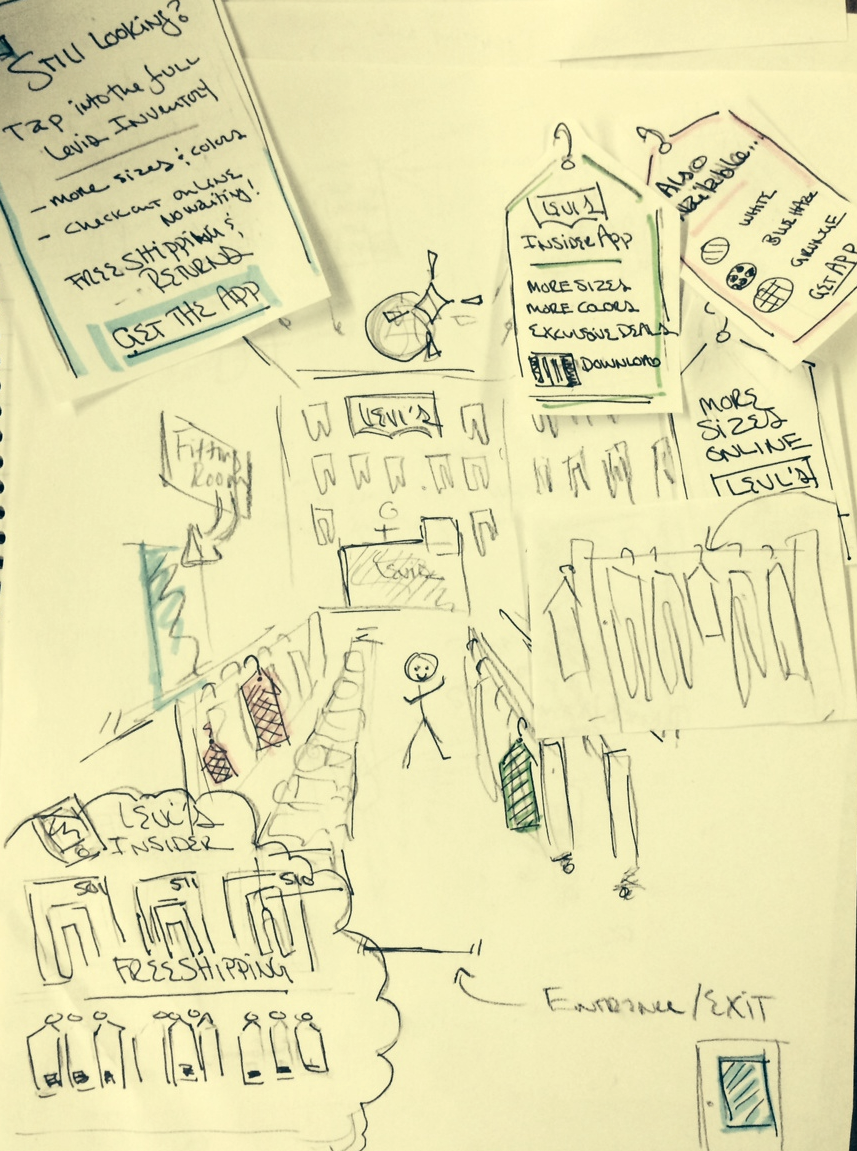 STILL LOOKING?
TAP into the full
Levis INVENTORY
- MORE SIZES & COLORS
- CHECKOUT ONLINE
NO WAITING!
FREE SHIPPING &
RETURNS
GET THE APP
LEVI'S
INSIDER APP
MORE SIZES
MORE COLORS
EXCLUSIVE DEALS
DOWNLOAD
ALSO
Available...
WHITE
BLUE HAZE
GRUNGE
GET APP
MORE
SIZES
ONLINE
LEVI'S
LEVI'S
Fitting
Room
LEVIS
LEVI'S
INSIDER
501
511
510
FREE SHIPPING
ENTRANCE/EXIT